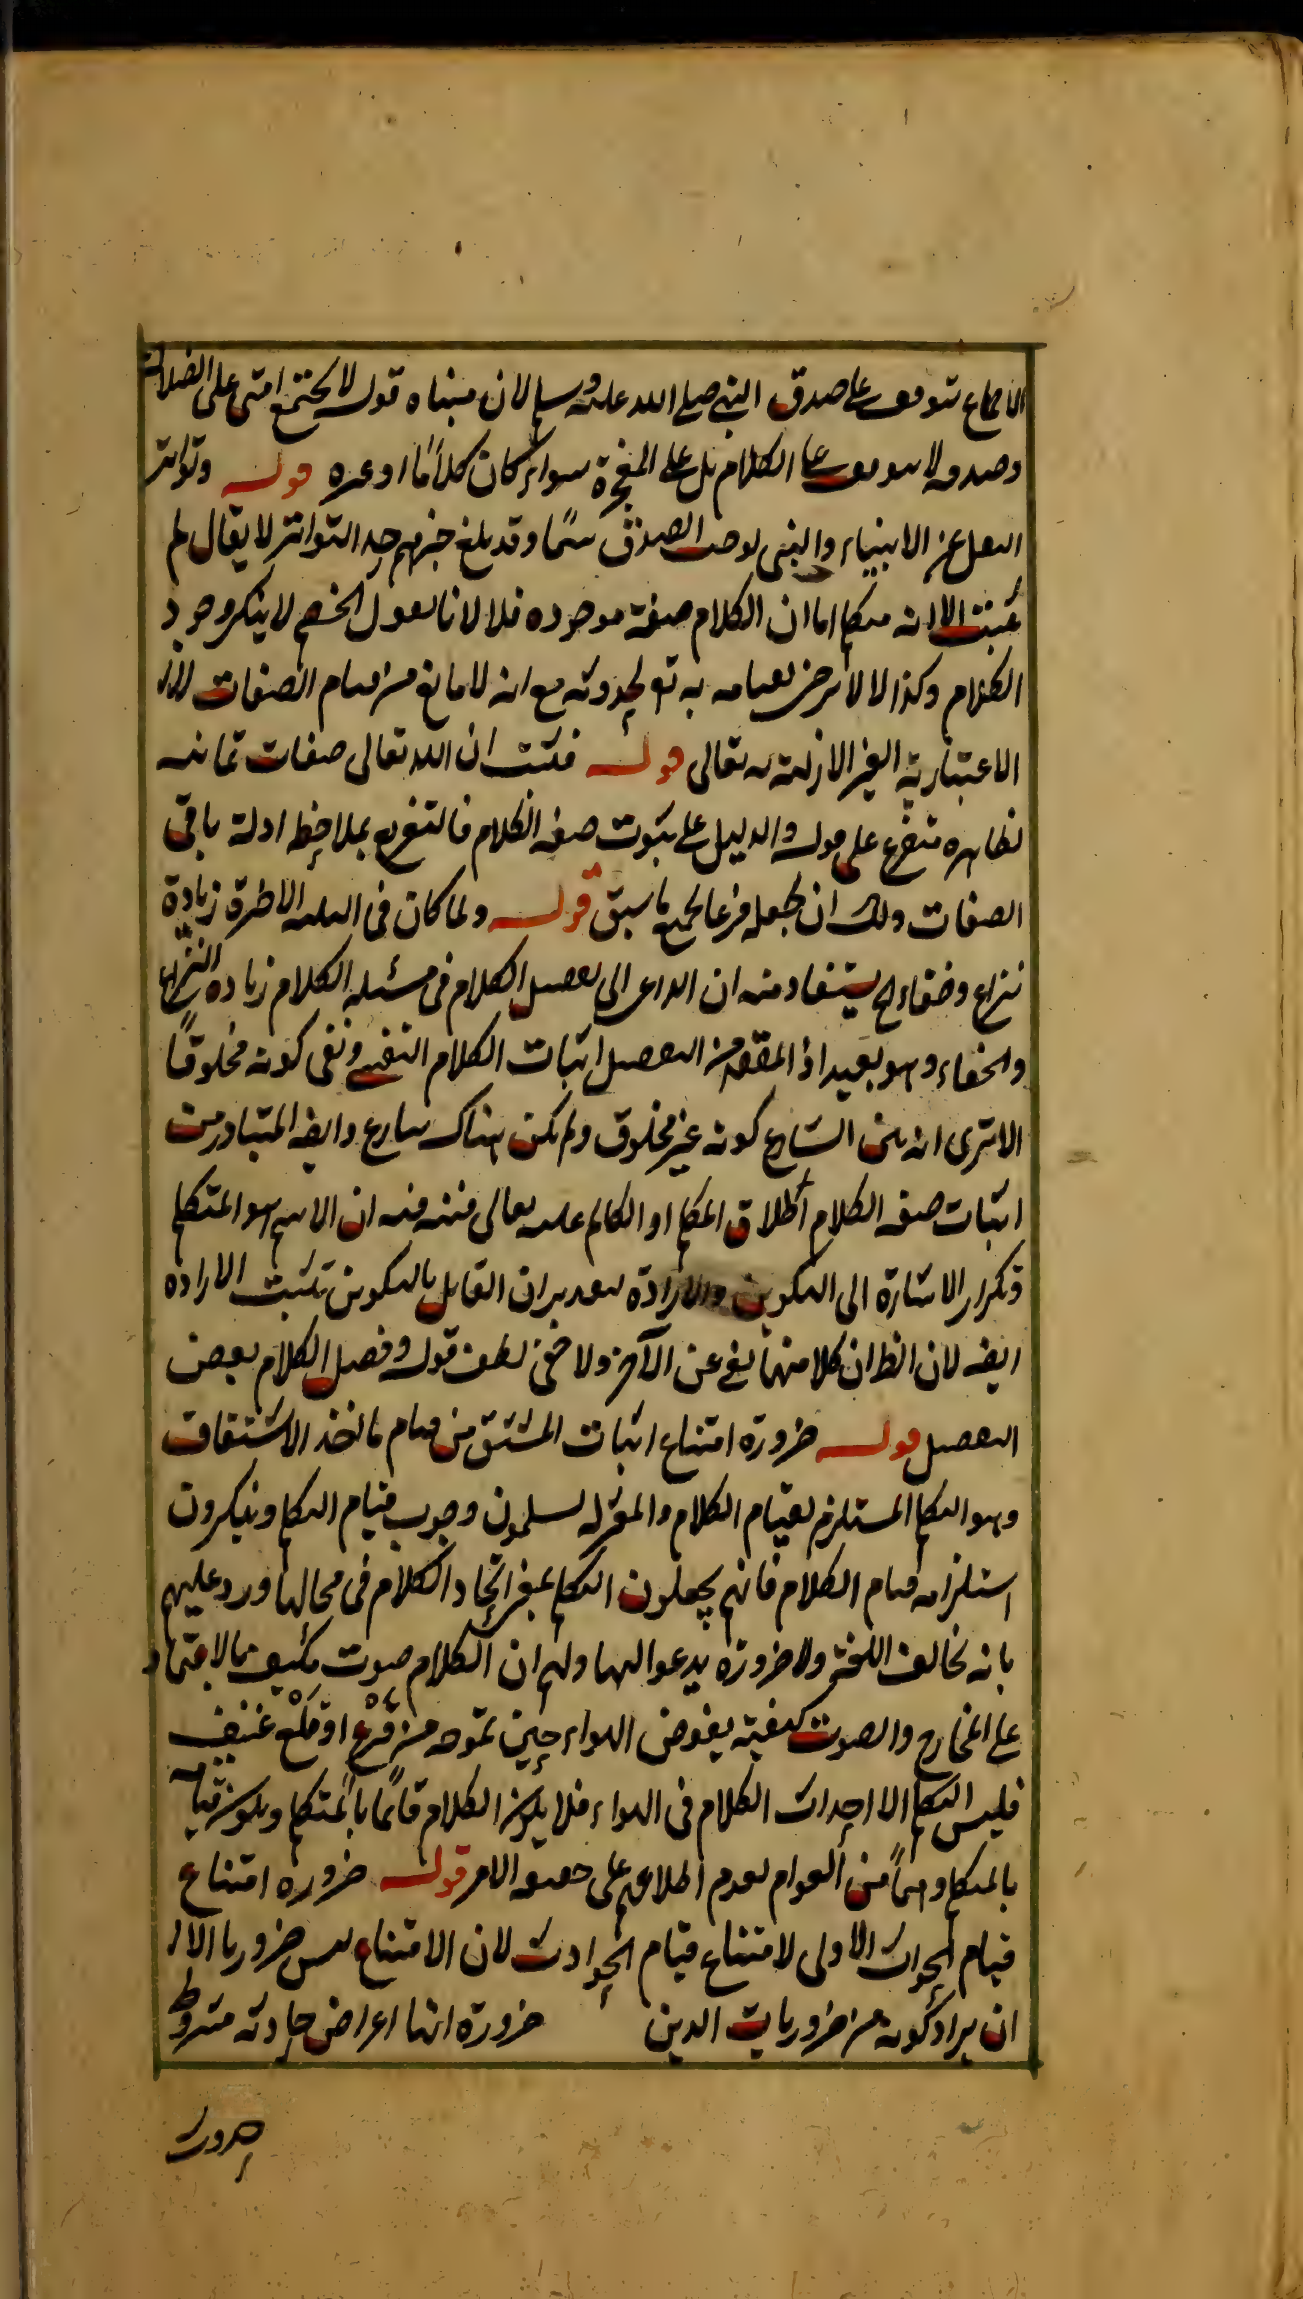 الاجماع يتوقف على صدق النبي صلى الله عليه وسلم لان مبناه قوله لا يجتمع امتى على الضلالة
وصدقه لا يتوقف على الكلام بل على المعجزة سواء كان كلاما او غيره قوله وتواتر
النقل عن الانبياء والنبى يوجب الصدق سيما وقد بلغ خبرهم حد التواتر لا يقال لم
يثبت الا انه متكلم اما ان الكلام صفة موجوده فلا لانا نقول الخصم لا ينكر وجود
الكلام وكذا لا لا يرضى بقيامه به تع لحدوثه مع انه لا مانع من قيام الصفات
الاعتبارية الغير الازلية به تعالى قوله فثبت ان الله تعالى صفات ثمانية
ظاهره متفرع على قوله والدليل على ثبوت صفة الكلام فالتفريع بملاحظة ادلة باقى
الصفات ولك ان تجعله فرعا لجميع ما سبق قوله ولما كان فى الثلثة الاخيرة زيادة
نزاع وخفاء الخ يستفاد منه ان الداعى الى تفصيل الكلام فى مسئلة الكلام زيادة النزاع
والخفاء وهو بعيد اذ المقصد من التفصيل اثبات الكلام النفسى ونفى كونه مخلوقا
الا ترى انه بين الشارح كونه غير مخلوق ولم يكن هناك نزاع وايضا المتبادر من
اثبات صفة الكلام اطلاق المتكلم او الكالم عليه تعالى فنبه فيه ان الاسم هو المتكلم
وتكرار الاشارة الى التكوين والارادة لتقدير ان القايل بالتكوين يثبت الارادة
ايضا لان الظ ان كلا منهما يغنى عن الآخر ولا يخفى لطف قوله وفصل الكلام بعض
التفصيل قوله ضرورة امتناع اثبات المشتق من قيام ماخذ الاشتقاق
وهو التكلم المستلزم لقيام الكلام والمعتزلة يسلمون وجوب قيام التكلم وينكرون
استلزامه قيام الكلام فانهم يجعلون التكلم بمعنى ايجاد الكلام فى محالها ورد عليهم
بانه يخالف اللغة ولا ضرورة يدعو اليها ولهم ان الكلام صوت مكيف بالاعتماد
على المخارج والصوت كيفية يفوض الهواء حين تموجه من قرع او قلع عنيف
فليس التكلم الا احداث الكلام فى الهواء فلا يكون الكلام قائما بالمتكلم ويكون قيامه
بالمتكلم وهما من العوام لعدم اطلاعهم على حقيقة الامر قوله ضرورة امتناع
قيام الحوادث الاولى لامتناع قيام الحوادث لان الامتناع ليس ضروريا الا
ان يراد كونه من ضروريات الدين ضرورة انها اعراض حادثة مشروط
حدوث